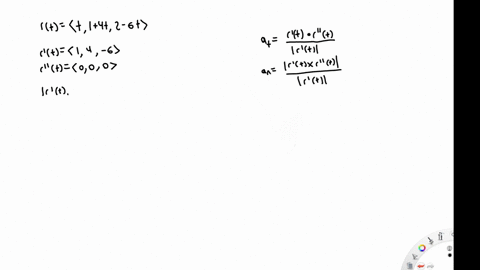 r(t) = <t, 1+4t, 2-6t>
r'(t) = <1, 4, -6>
r''(t) = <0, 0, 0>
|r'(t).
a_t = r'(t) • r''(t) / |r'(t)|
a_n = |r'(t) x r''(t)| / |r'(t)|